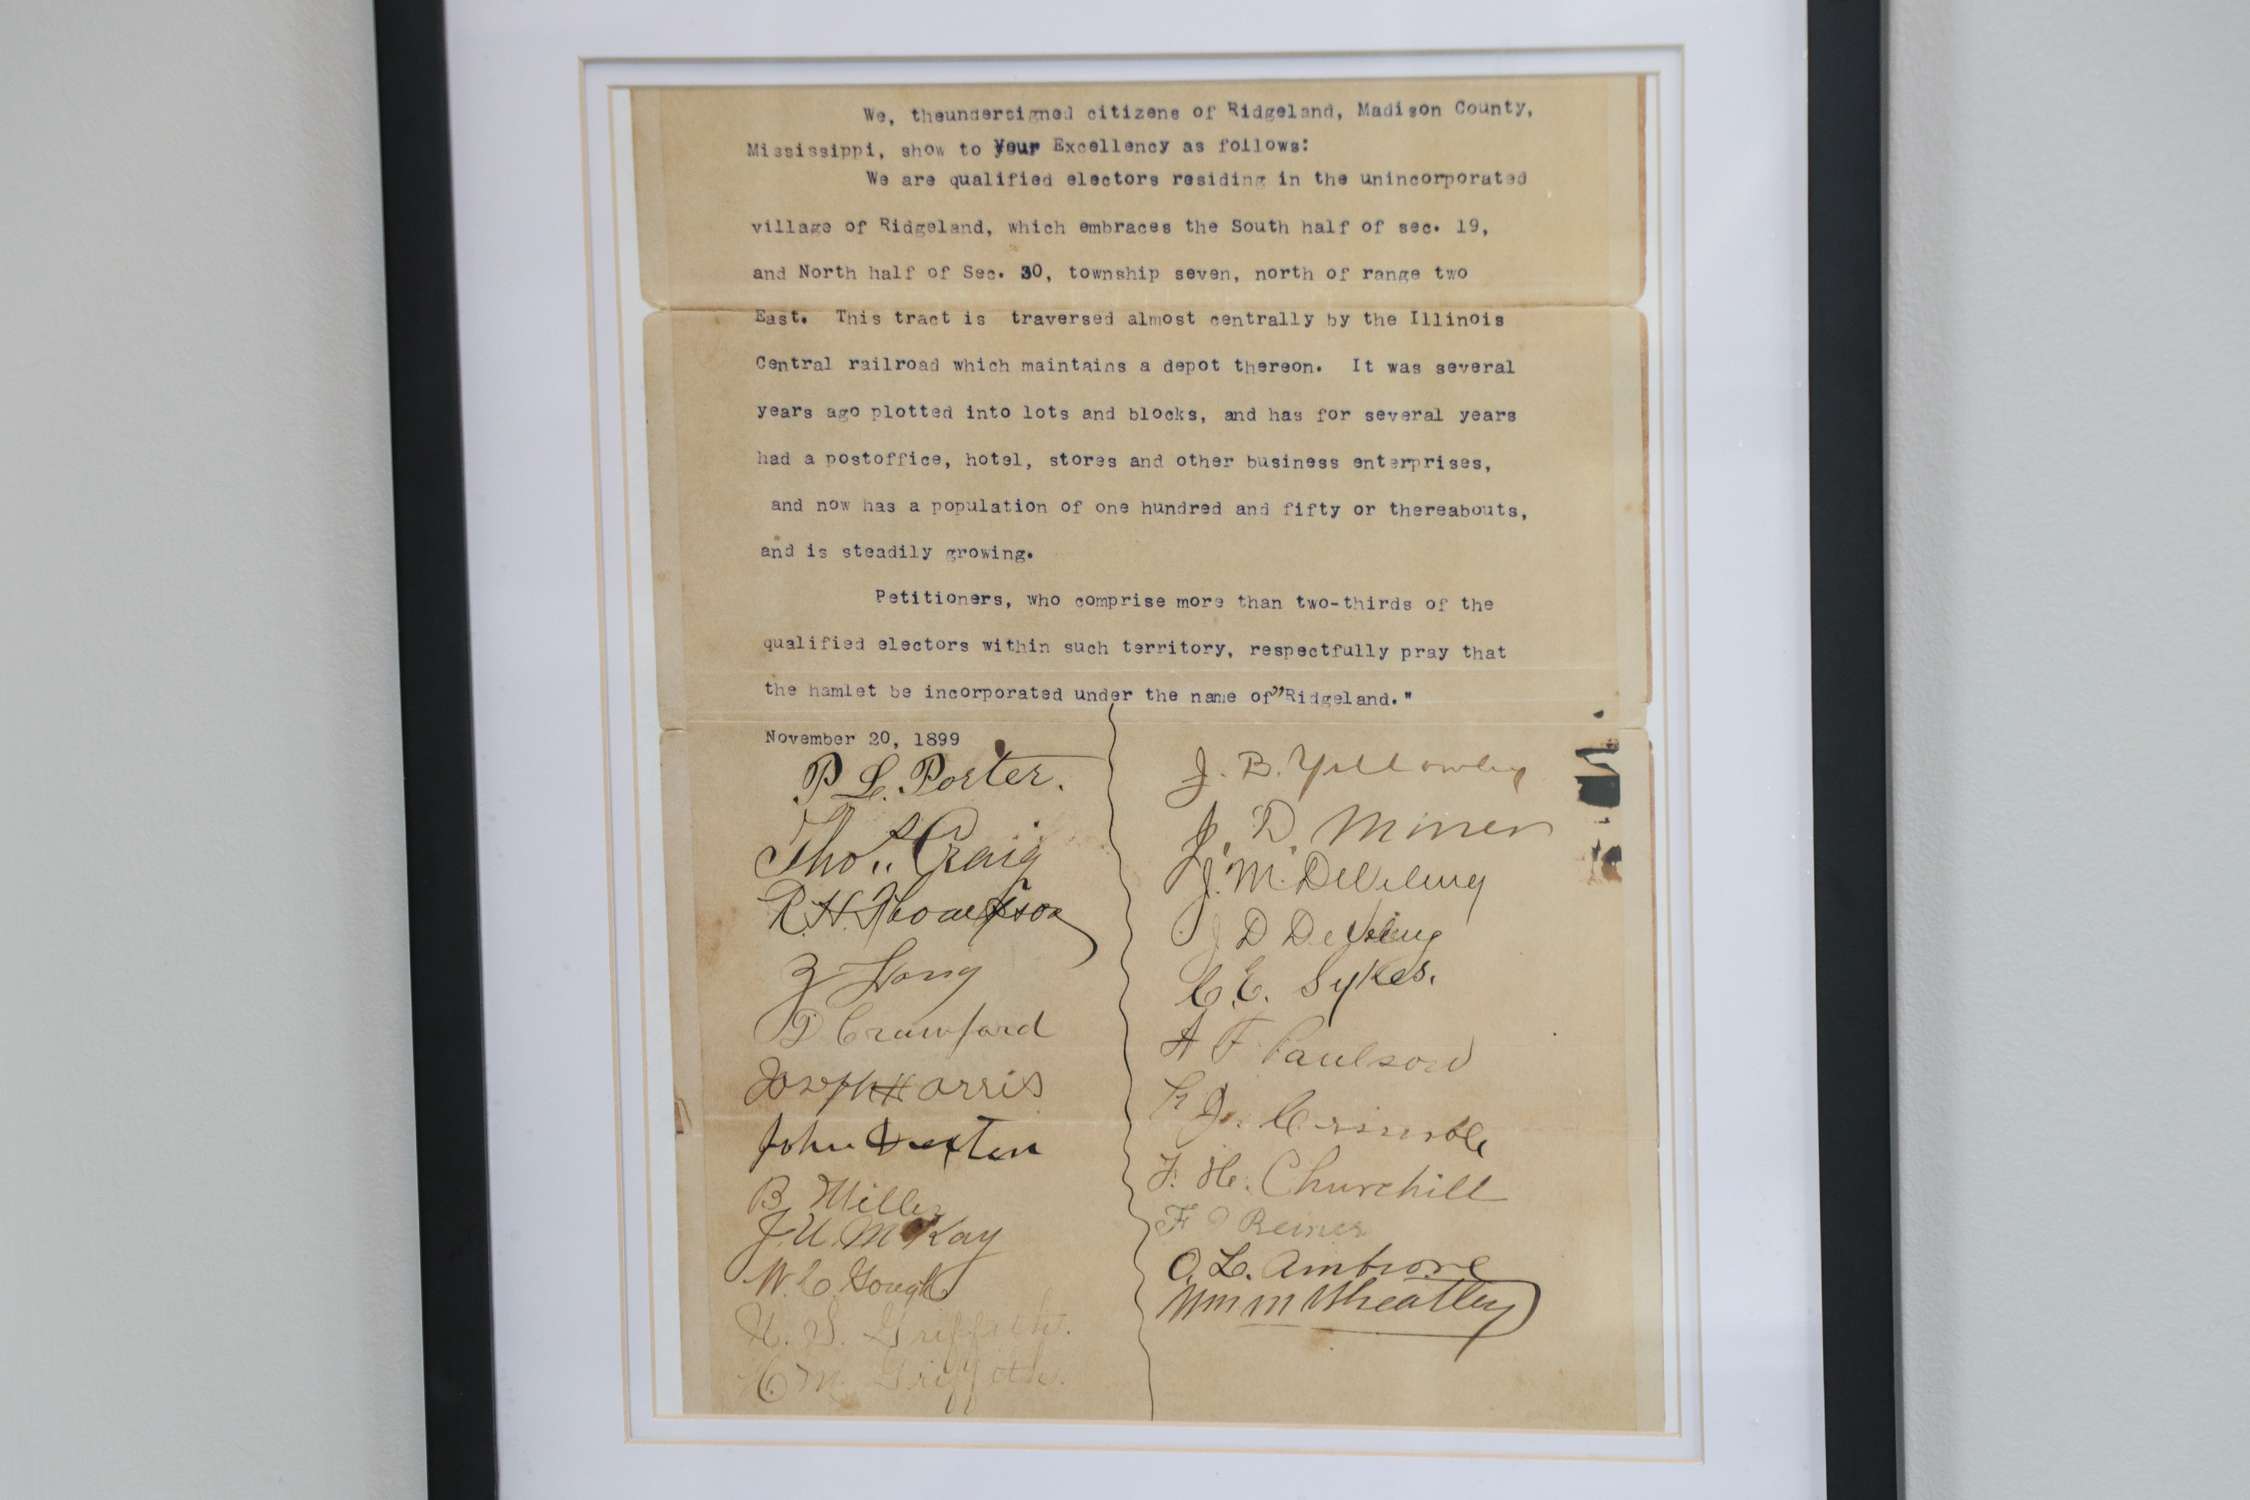 We, theundersigned citizens of Ridgeland, Madison County,
Mississippi, show to Your Excellency as follows:
We are qualified electors residing in the unincorporated
village of Ridgeland, which embraces the South half of sec. 19,
and North half of Sec. 30, township seven, north of range two
East. This tract is traversed almost centrally by the Illinois
Central railroad which maintains a depot thereon. It was several
years ago plotted into lots and blocks, and has for several years
had a postoffice, hotel, stores and other business enterprises,
and now has a population of one hundred and fifty or thereabouts,
and is steadily growing.
Petitioners, who comprise more than two-thirds of the
qualified electors within such territory, respectfully pray that
the hamlet be incorporated under the name of "Ridgeland."
November 20, 1899
P. L. Porter.
Thos. Craig
R. H. Thompson
Z Long
D Crawford
Joseph Harris
John
B Miller
J. U. McKay
W. C. Gough
H. S. Griffith.
H. M. Griffith.
J. B. Yellowley
J. D. Miner
J. M. DeVelling
J D
C. E. Sykes.
A F Paulson
Crimble
F. H. Churchill
F Reiner
O. L. Ambrose
Wm M Wheatley